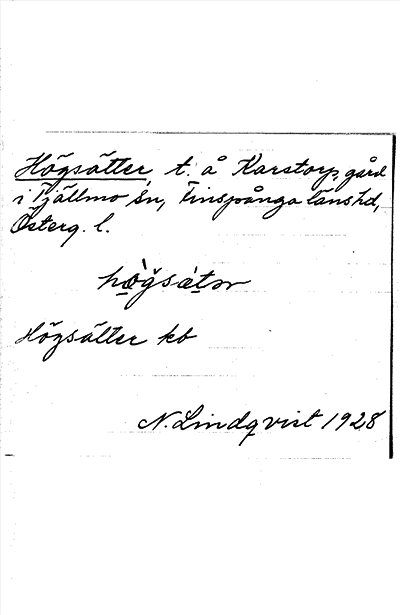 Högsätter, t. å Karstorp, gård
i Tjällmo sn, Finspånga länshd,
Österg. l.
hö̀gsätər
Högsätter kb
N. Lindqvist 1928